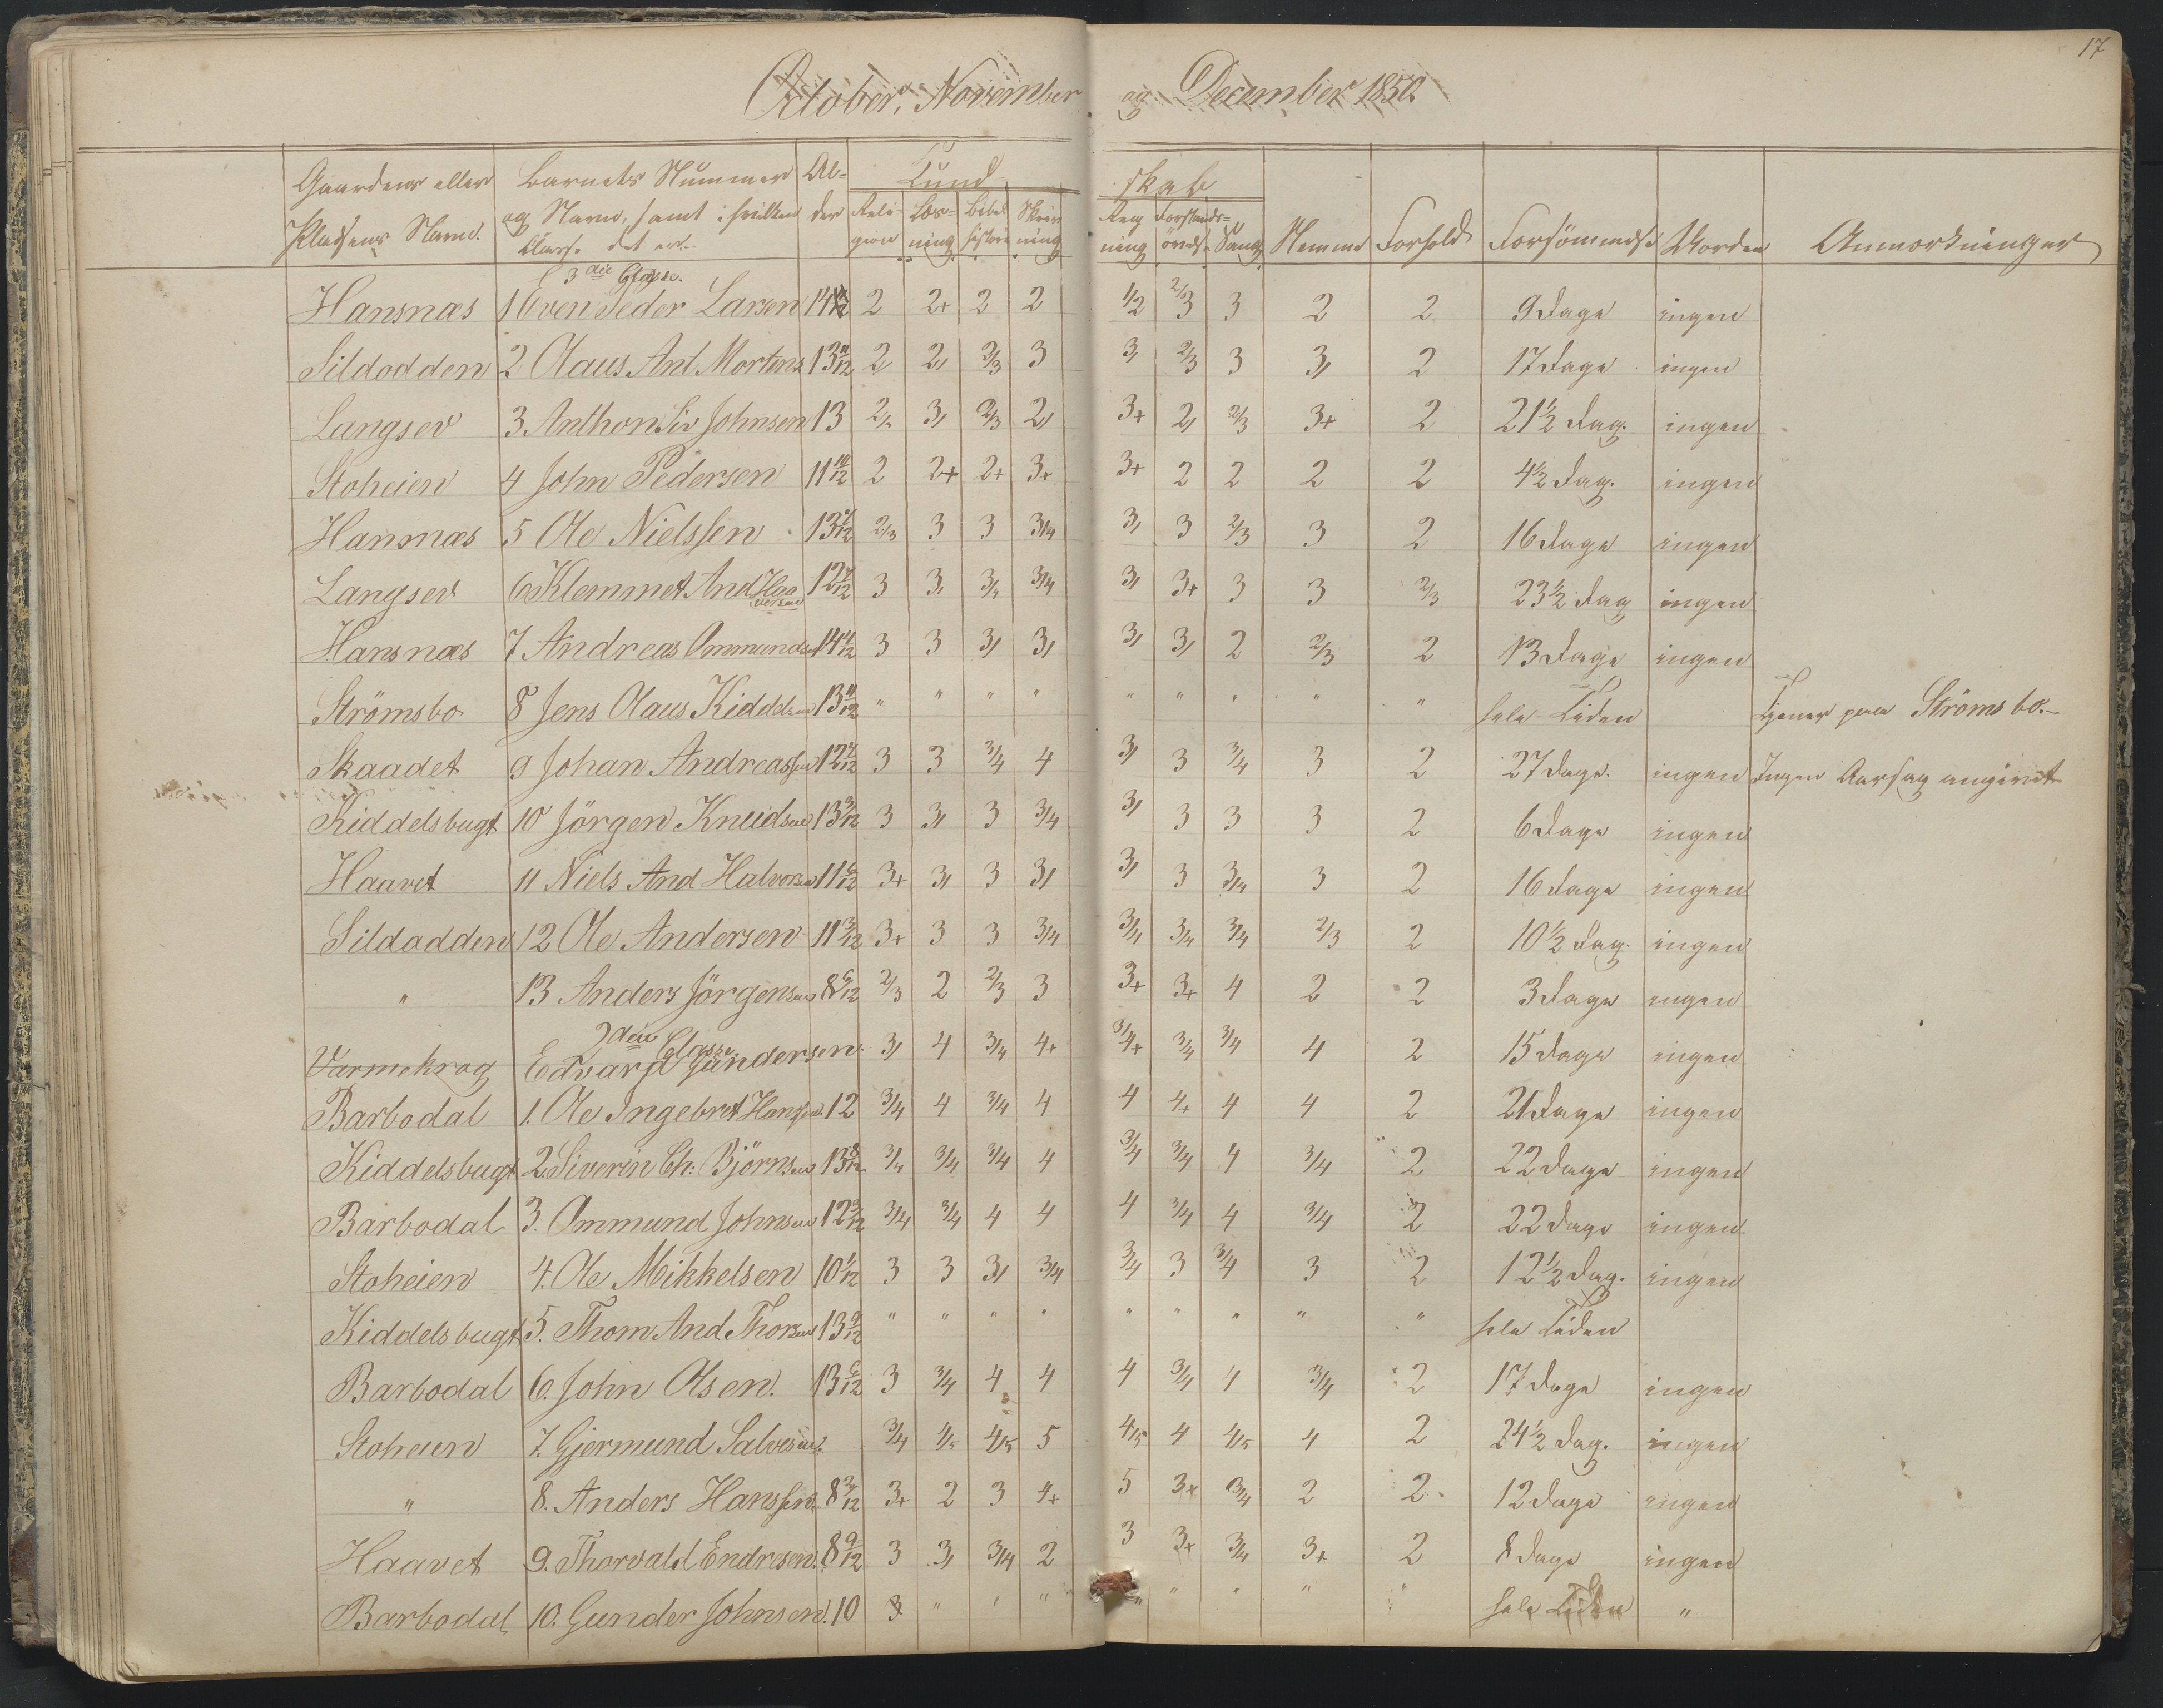 17
October, November og December 1850.
Gaardens eller Pladsens Navn. Barnets Nummer og Navn, samt i hvilken Classe det er. Alder Kundskab Religion Læsning Bibelhistorie Skrivning Regning Forstandsøvelse Sang Nemme Forhold Forsömmelse Orden Anmærkninger
3die Classe.
Hansnæs 1 Even Peder Larsen 14 2 2+ 2 2 1/2 2/3 3 2 2 9 Dage ingen
Sildodden 2 Olaus Ant Mortens 13 11/12 2 2, 3/3 3 3, 2/3 3 3, 2 17 Dage ingen
Lungsev 3. Anthon Siv Johnsen 13 3, 2/3 2, 3+ 2, 2/3 3+ 2 21 1/2 Dag. ingen
Stoheien 4 John Pedersen 11 10/12 2 2+ 2+ 3+ 3+ 2 2 2 2 4 1/2 Dag. ingen
Hansnæs 5 Ole Nielssen 13 2/3 3 3 3/4 3, 3 2/3 3 2 16 Dage ingen
Langsev 6 Klemmet And Halversen 12 3 3, 3/4 3, 3+ 3 3 2/3 23 1/2 Dag ingen
Hansnæs 7 Andreas Ommunds 14 3 3 3, 3, 3, 3, 2 2/3 2 13 Dage ingen
Strömsbo 8 Jens Olaus Kiddelsen 13 11/12 " " " " " " " " " hele Tiden Tjener paa Strömsbo.
Skaadet 9 Johan Andreassen 12 3 3 3/4 4 3, 3 3/4 3 2 27 Dage. ingen Ingen Aarsag angivet
Kiddelsbugt 10 Jörgen Knudsen 13 3/12 3 3, 3 3/4 3, 3 3 3 2 6 Dage ingen
Haavet 11 Niels And Halvorsen 11 6/12 3+ 3, 3 3, 3, 3 3/4 3 2 16 Dage ingen
Sildodden 12 Ole Andersen 11 3/12 3+ 3 3 3/4 3/4 3/4 3/4 2/3 2 10 1/2 Dag. ingen
" 13 Anders Jörgensen 8 6/12 2/3 2 2/3 3 3+ 3+ 4 2 2 3 Dage ingen
2den Classe.
Varmekrog Edvard Gundersen. 3, 4 3/4 4+ 3/4+ 3/4 3/4 4 2 15 Dage ingen
Barbodal 1. Ole Ingebret Hansen 12 3/4 4 3/4 4 4 4+ 4 4 2 21 Dage ingen
Kiddelsbugt 2. Siverin Ch: Björnsen 13 8/12 3/4 3/4 3/4 4 3/4 3/4 4 3/4 2 22 Dage ingen
Barbodal 3. Ommund Johnsen 12 3/4 3/4 4 4 4 3/4 4 3/4 2 22 Dage ingen
Stoheien 4. Ole Mikkelsen 10 1/12 3 3 3, 3/4 3/4 3 3/4 3 2 12 1/2 Dag. ingen
Kiddelsbugt 5. Thom And Thorsen 13 9/12 " " " " " " " " " hele Tiden
Barbodal 6. John Olsen. 13 6/12 3 3/4 4 4 4 3/4 4 3/4 2 17 Dage ingen
Stoheien 7. Gjermund Salvesen. 3/4 4/5 4/5 5 4/5 4 4/5 4 2 24 1/2 Dag. ingen
" 8. Anders Hanssen. 8 3/12 3+ 2 3 4+ 5 3+ 3/4 2 2 12 Dage ingen
Haavet 9. Thorvald Endresen. 8 9/12 3 3, 3/4 2 3 3+ 3/4 3+ 2 8 Dage ingen
Barbodal 10. Gunder Johnsen. 10 3 " " " " " " " " hele Tiden "